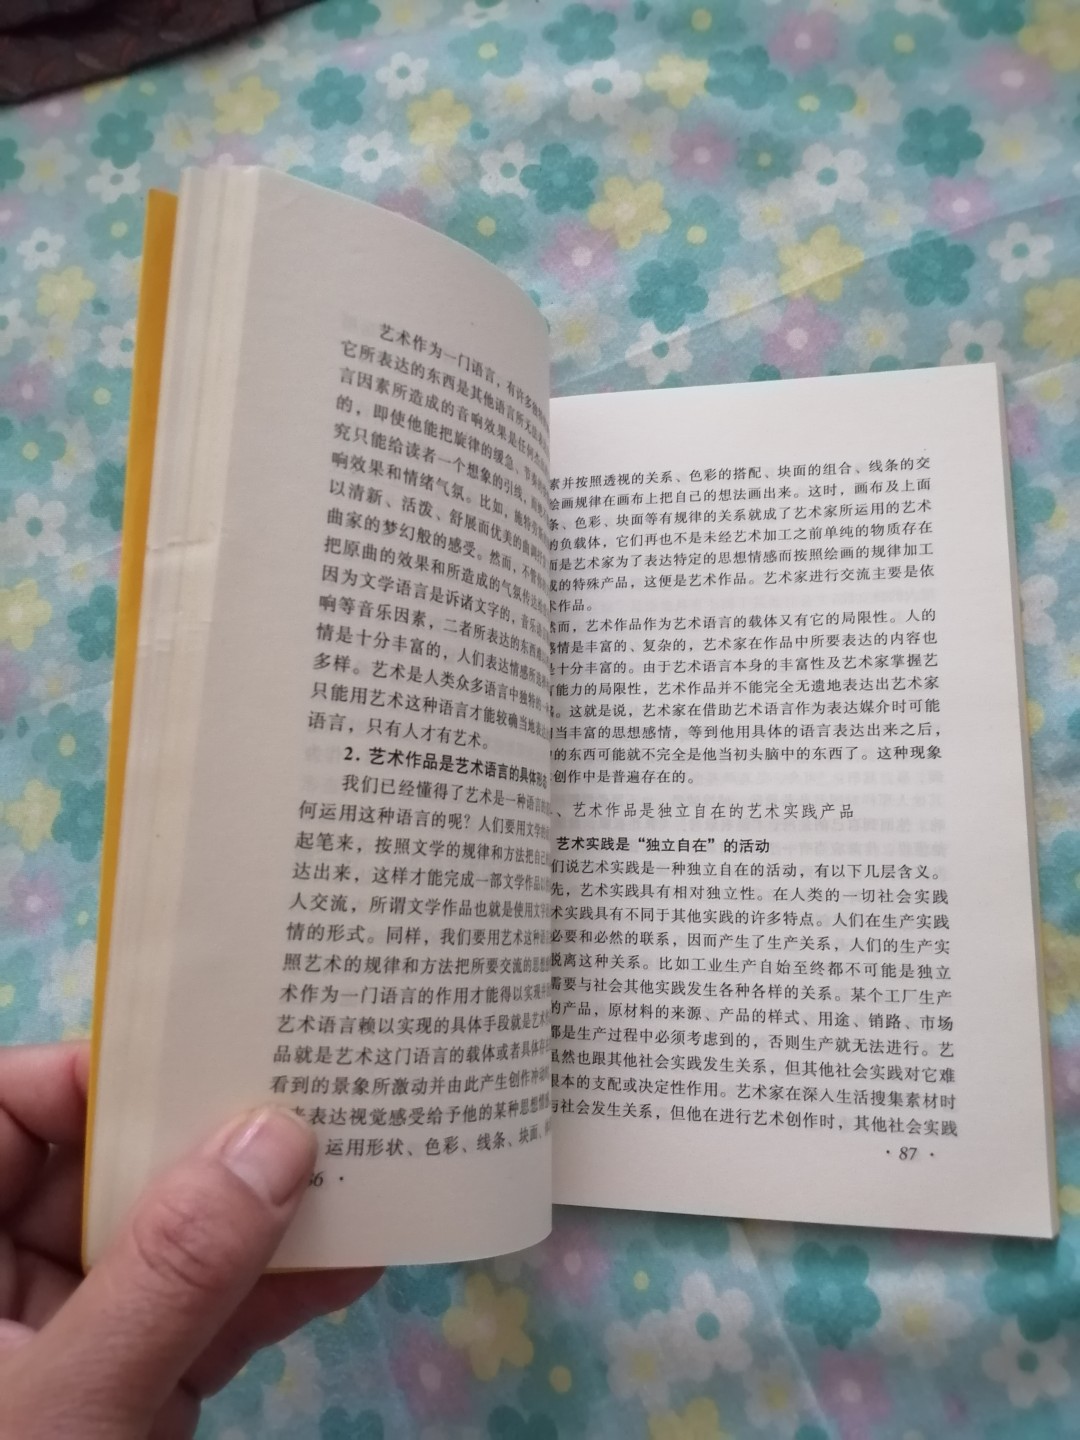 艺术作为一门语言，有许多独特
它所表达的东西是其他语言所无法
言因素所造成的音响效果是任何
的，即使他能把旋律的缓急、节奏
究只能给读者一个想象的引线，
响效果和情绪气氛。比如，施特劳斯
以清新、活泼、舒展而优美的曲调
曲家的梦幻般的感受。然而，不管
把原曲的效果和所造成的气氛传达
因为文学语言是诉诸文字的，音乐
响等音乐因素，二者所表达的东西
情是十分丰富的，人们表达情感所
多样。艺术是人类众多语言中独特的一
只能用艺术这种语言才能较确当地表达
语言，只有人才有艺术。
2．艺术作品是艺术语言的具体形态
我们已经懂得了艺术是一种语言
何运用这种语言的呢？人们要用文学的
起笔来，按照文学的规律和方法把自己
达出来，这样才能完成一部文学作品以
人交流，所谓文学作品也就是使用文字
情的形式。同样，我们要用艺术这种语言
照艺术的规律和方法把所要交流的思想
术作为一门语言的作用才能得以实现
艺术语言赖以实现的具体手段就是艺术
品就是艺术这门语言的载体或者具体存
看到的景象所激动并由此产生创作冲动
来表达视觉感受给予他的某种思想情
运用形状、色彩、线条、块面、
6 ·
素并按照透视的关系、色彩的搭配、块面的组合、线条的交
绘画规律在画布上把自己的想法画出来。这时，画布及上面
条、色彩、块面等有规律的关系就成了艺术家所运用的艺术
的负载体，它们再也不是未经艺术加工之前单纯的物质存在
而是艺术家为了表达特定的思想情感而按照绘画的规律加工
成的特殊产品，这便是艺术作品。艺术家进行交流主要是依
术作品。
然而，艺术作品作为艺术语言的载体又有它的局限性。人的
感情是丰富的、复杂的，艺术家在作品中所要表达的内容也
是十分丰富的。由于艺术语言本身的丰富性及艺术家掌握艺
言能力的局限性，艺术作品并不能完全无遗地表达出艺术家
。这就是说，艺术家在借助艺术语言作为表达媒介时可能
相当丰富的思想感情，等到他用具体的语言表达出来之后，
中的东西可能就不完全是他当初头脑中的东西了。这种现象
创作中是普遍存在的。
、艺术作品是独立自在的艺术实践产品
艺术实践是“独立自在”的活动
们说艺术实践是一种独立自在的活动，有以下几层含义。
先，艺术实践具有相对独立性。在人类的一切社会实践
术实践具有不同于其他实践的许多特点。人们在生产实践
必要和必然的联系，因而产生了生产关系，人们的生产实
脱离这种关系。比如工业生产自始至终都不可能是独立
需要与社会其他实践发生各种各样的关系。某个工厂生产
的产品，原材料的来源、产品的样式、用途、销路、市场
都是生产过程中必须考虑到的，否则生产就无法进行。艺
虽然也跟其他社会实践发生关系，但其他社会实践对它难
根本的支配或决定性作用。艺术家在深入生活搜集素材时
与社会发生关系，但他在进行艺术创作时，其他社会实践
· 87 ·